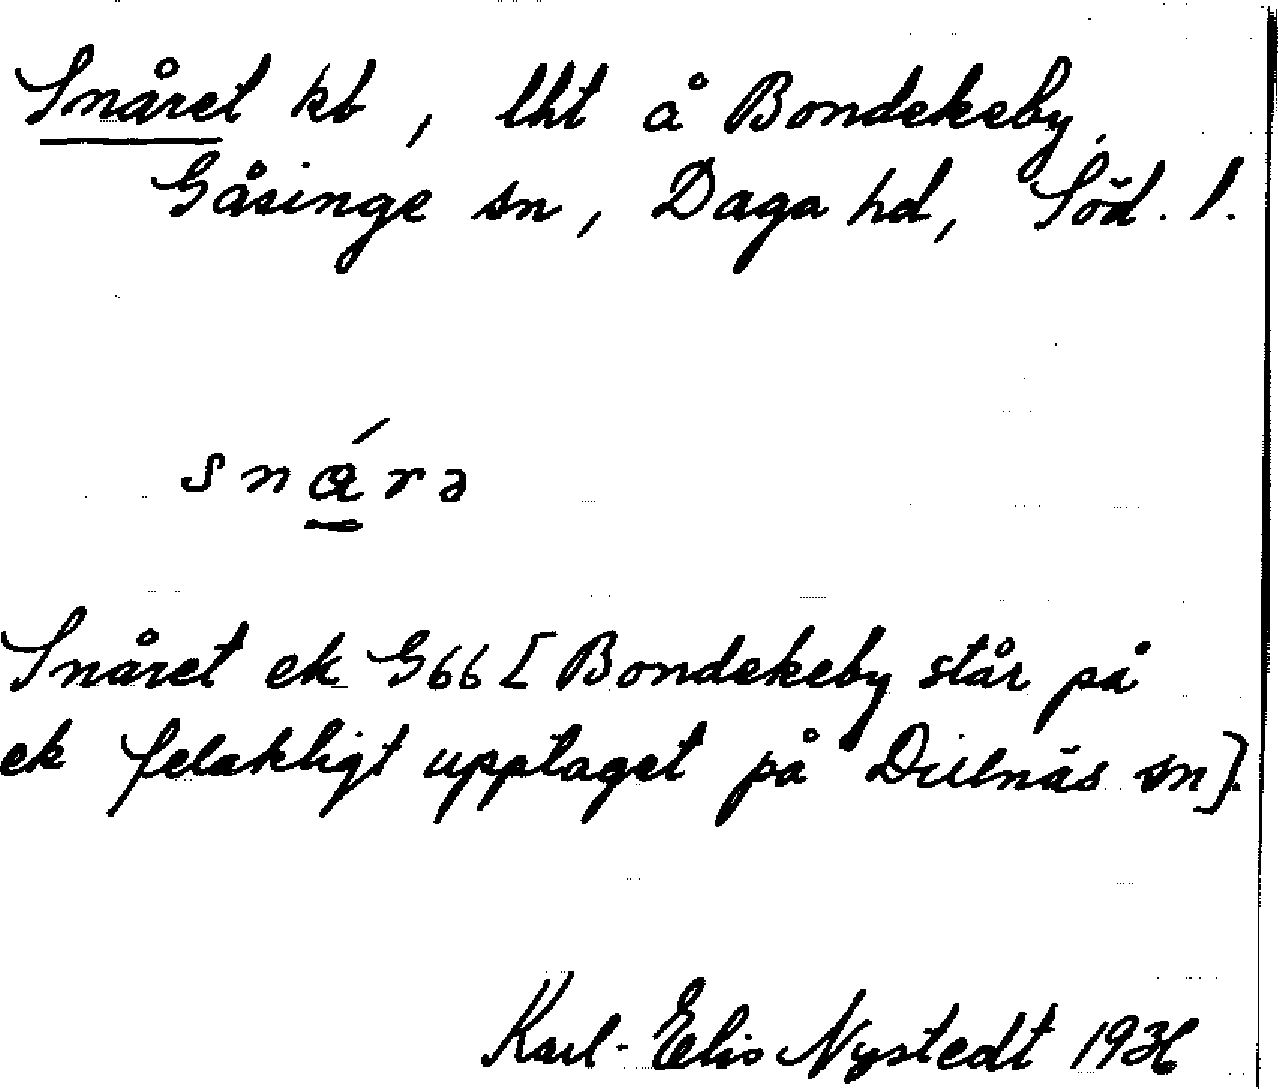 Snåret kt, lht å Bondekeby,
Gåsinge sn, Daga hd, Söd. l.
snárə
Snåret ek G66 [Bondekeby står på
ek felaktigt upptaget på Dillnäs sn].
Karl-Elis Nystedt 1936